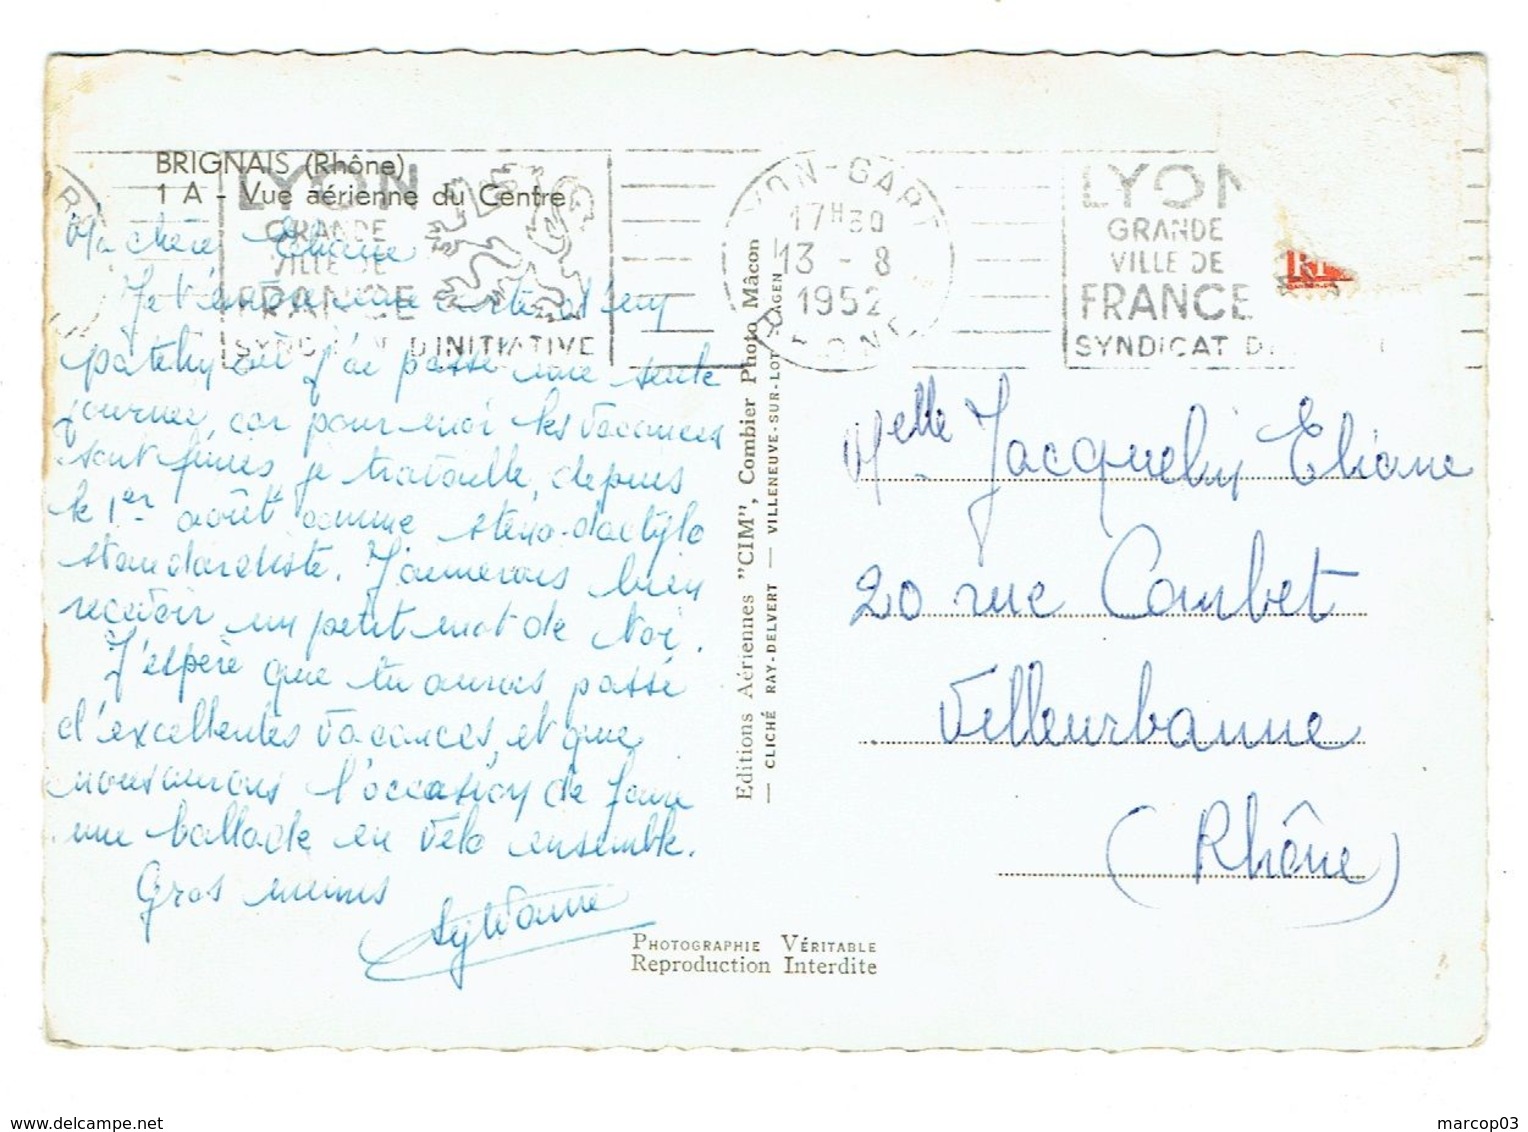 BRIGNAIS (Rhône)
1 A - Vue aérienne du Centre
LYON
GRANDE
VILLE DE
FRANCE
SYNDICAT D'INITIATIVE
LYON-GARE
17H30
13 - 8
1952
RHONE
LYON
GRANDE
VILLE DE
FRANCE
SYNDICAT D'
Ma chère Eliane
Je t'envoie une carte d'
où j'ai passé une seule
journée, car pour moi les vacances
sont finies je travaille, depuis
le 1er août comme sténo-dactylo
standardiste. J'aimerais bien
recevoir un petit mot de toi.
J'espère que tu auras passé
d'excellentes vacances, et que
nous aurons l'occasion de faire
une ballade en vélo ensemble.
Gros mimis
Sylvaine
Editions Aériennes "CIM", Combier Photo Mâcon
— CLICHÉ RAY-DELVERT — VILLENEUVE-SUR-LOT
PHOTOGRAPHIE VÉRITABLE
Reproduction Interdite
Melle Jacquelin Eliane
20 rue Combet
Villeurbanne
(Rhône)
marcop03